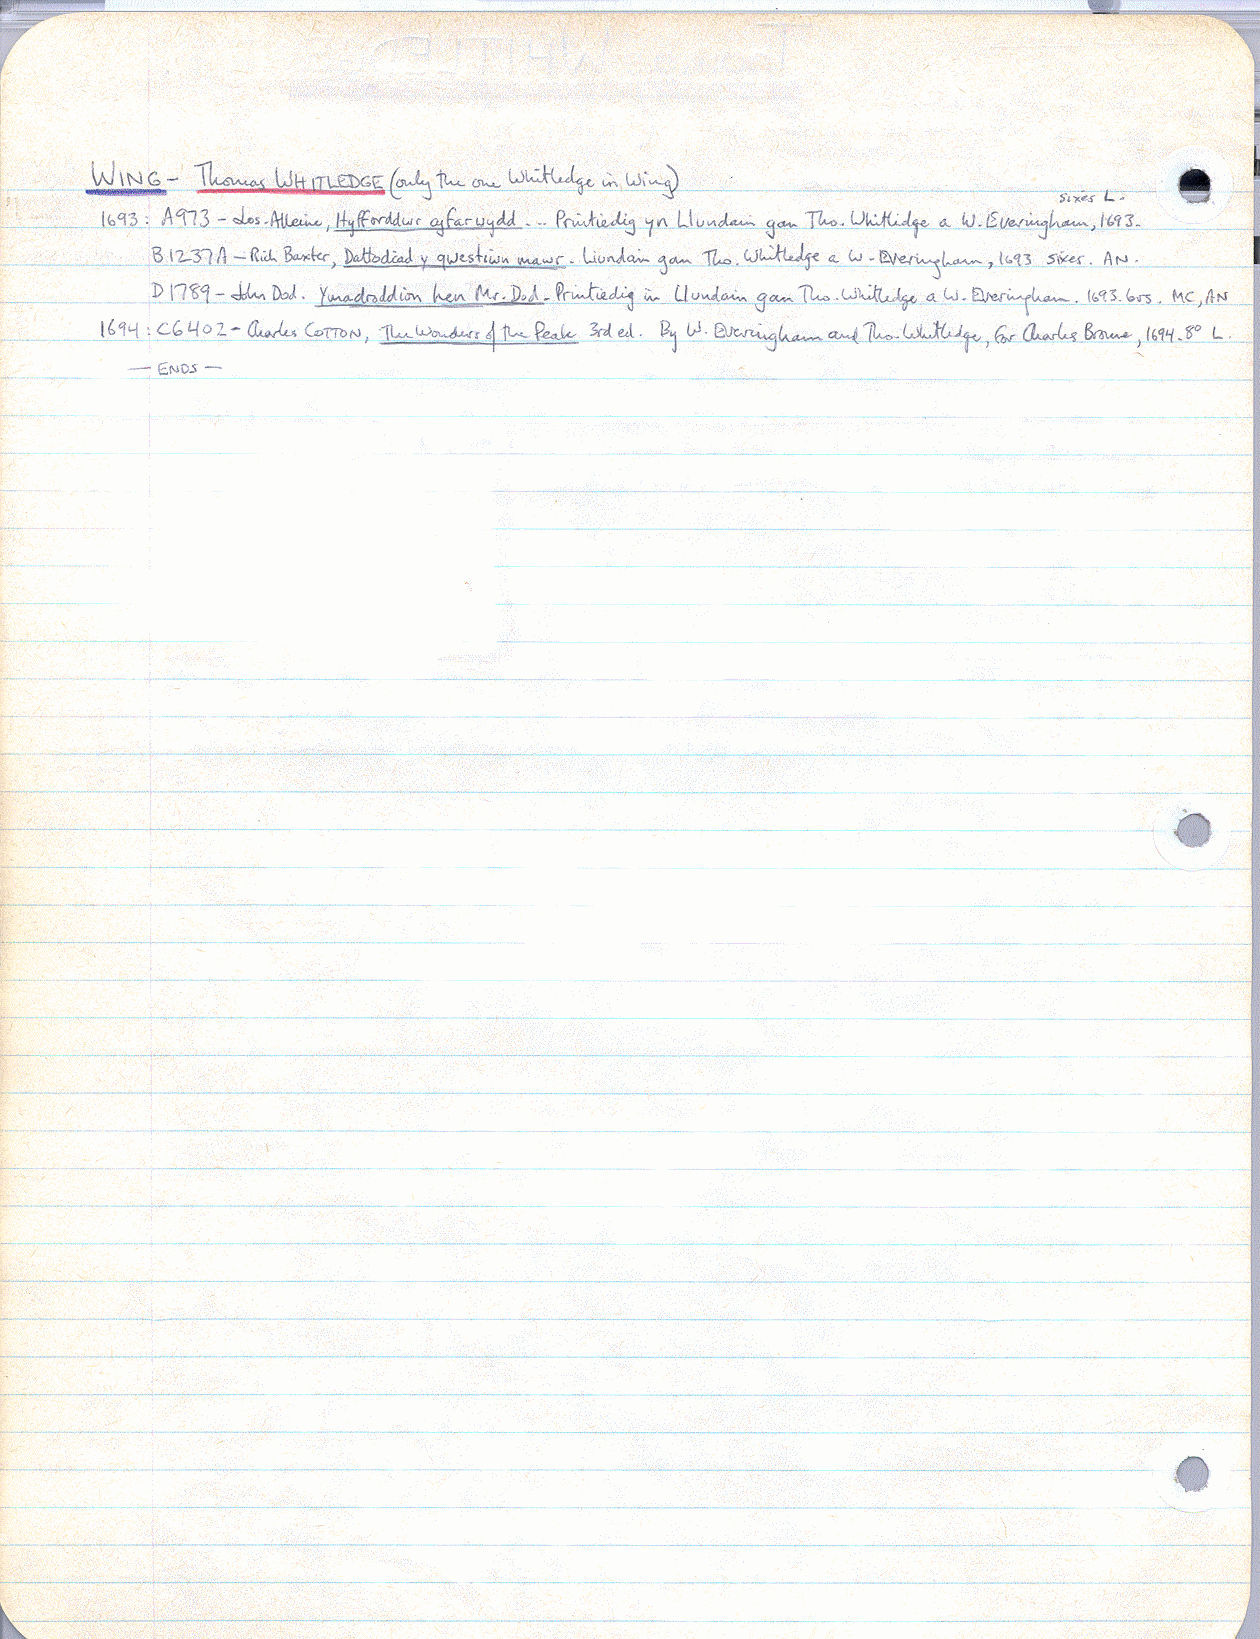 WING - Thomas WHITLEDGE (only the one Whitledge in Wing)
sixes L.
1693: A973 - Jos. Alleine, Hyfforddwr cyfarwydd ... Printiedig yn Llundain gan Tho. Whitledge a W. Everingham, 1693.
B1237A - Rich Baxter, Dattodiad y qwestiwn mawr. Llundain gan Tho. Whitledge a W. Everingham, 1693 sixes. AN.
D1789 - John Dod. Ymadroddion hen Mr. Dod. Printiedig in Llundain gan Tho. Whitledge a W. Everingham. 1693. 6vs. MC, AN
1694: C6402 - Charles COTTON, The Wonders of the Peake 3rd ed. By W. Everingham and Tho. Whitledge, for Charles Brome, 1694. 8° L.
— ENDS —